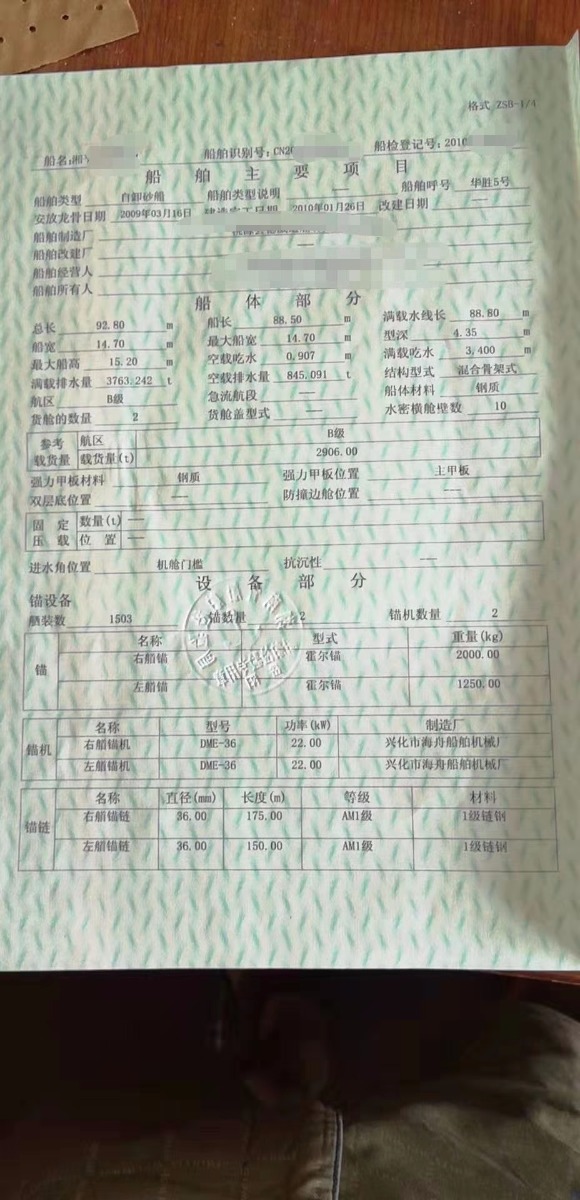 格式 ZSB-1/4
船名:湘 船舶识别号:CN20 船检登记号:2010
船舶主要项目
船舶类型 自卸砂船 船舶类型说明 —— 船舶呼号 华胜5号
安放龙骨日期 2009年03月16日 建造完工日期 2010年01月26日 改建日期 ——
船舶制造厂
船舶改建厂 ——
船舶经营人
船舶所有人
船体部分
总长 92.80 m 船长 88.50 m 满载水线长 88.80 m
船宽 14.70 m 最大船宽 14.70 m 型深 4.35 m
最大船高 15.20 m 空载吃水 0.907 m 满载吃水 3.400 m
满载排水量 3763.242 t 空载排水量 845.091 t 结构型式 混合骨架式
航区 B级 急流航段 —— 船体材料 钢质
货舱的数量 2 货舱盖型式 —— 水密横舱壁数 10
参考 航区 B级
载货量 载货量(t) 2906.00
强力甲板材料 钢质 强力甲板位置 主甲板
双层底位置 —— 防撞边舱位置 ——
固定 数量(t) ——
压载 位置 ——
进水角位置 机舱门槛 抗沉性 ——
设备部分
锚设备
舾装数 1503 锚数量 2 锚机数量 2
锚 名称 型式 重量(kg)
右艏锚 霍尔锚 2000.00
左艏锚 霍尔锚 1250.00
锚机 名称 型号 功率(kW) 制造厂
右艏锚机 DME-36 22.00 兴化市海舟船舶机械厂
左艏锚机 DME-36 22.00 兴化市海舟船舶机械厂
锚链 名称 直径(mm) 长度(m) 等级 材料
右艏锚链 36.00 175.00 AM1级 1级链钢
左艏锚链 36.00 150.00 AM1级 1级链钢